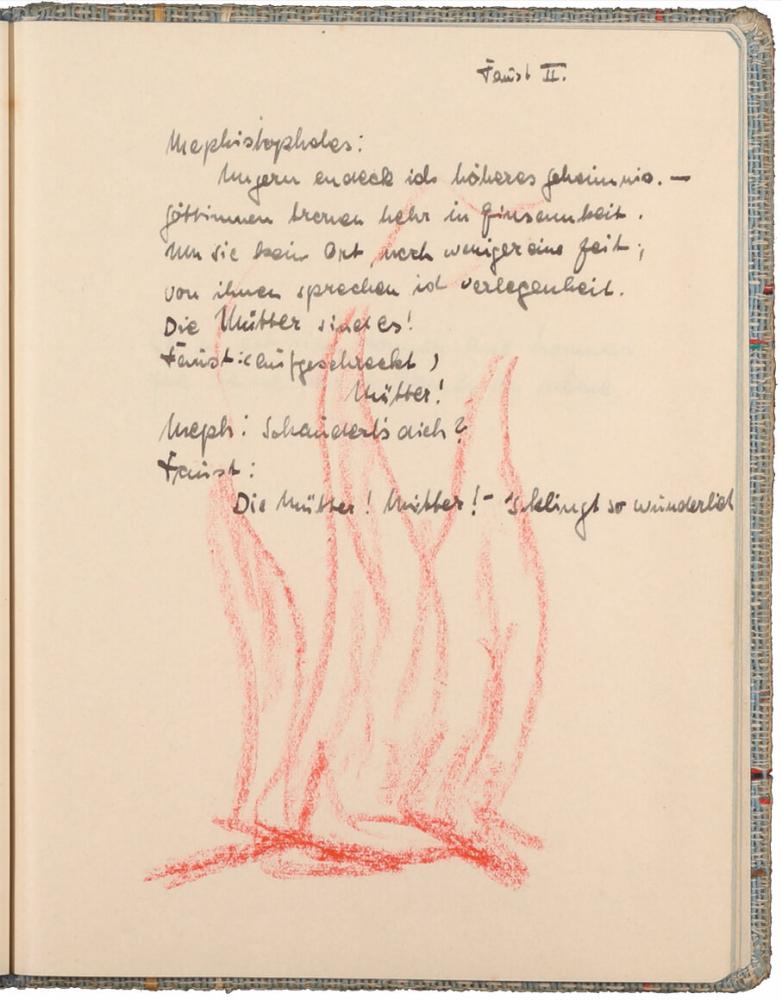 Faust II.
Mephistopheles:
Ungern endeck ich höheres geheimnis. —
göttinnen tronen hehr in Einsamkeit.
Um sie kein Ort, noch weniger eine Zeit;
von ihnen sprechen ist verlegenheit.
Die Mütter sind es!
Faust: (aufgeschreckt)
Mütter!
Meph: Schauderts dich?
Faust:
Die Mütter! Mütter! - 's klingt so wunderlich